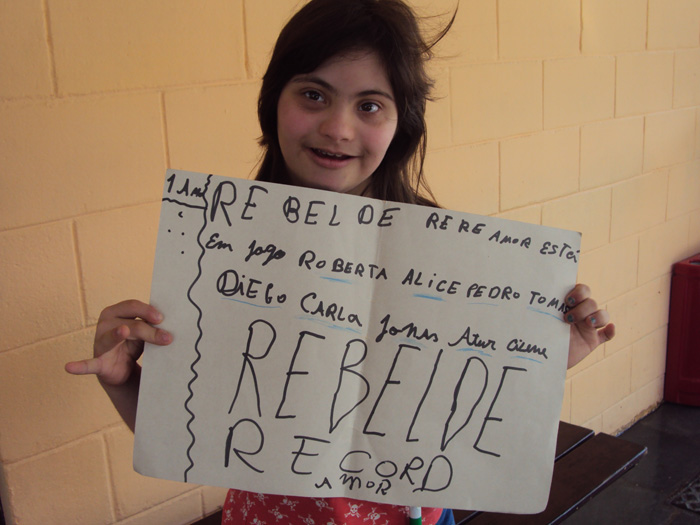 1 Ano
REBELDE RERE AMOR ESTÁ
Em jogo ROBERTA ALICE PEDRO TOMAS
DIEGO CARLA Jonas Artur cilene
REBELDE
RECORD
AMOR